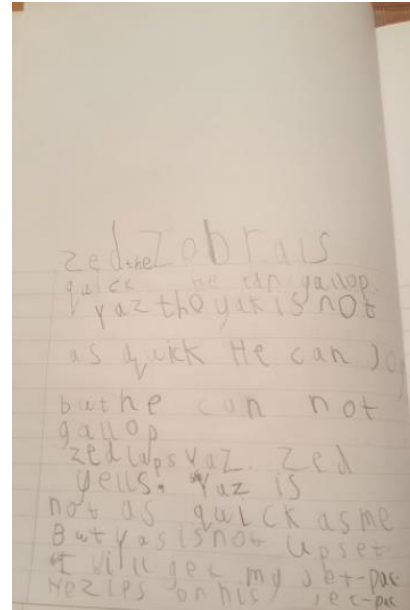 zed the Zebra is
quick he can gallop.
yaz the yak is not
as quick He can jog
but he can not
gallop
zed laps yaz. zed
yells. yaz is
not as quick as me
But yas is not upset.
I will get my jet-pac
He zips on his jet-pac